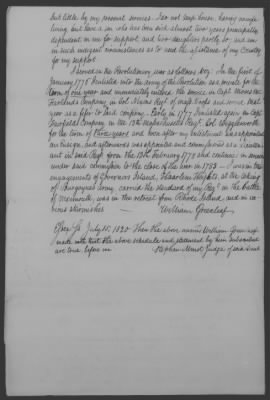 but little by my personal services. I am not
living and have a son who has been and almost two years principally
dependent on me for support and two daughters partly so, and am
in such indigent circumstances as to need the assistance of my Country
for my support
I served in the Revolutionary war as follows viz: In the first of
January 1776 I enlisted into the army of the Revolution as a private for the
term of one year and immediately entered the service in Capt
Company in Col. Regt of and served that
year as a in said company. Early in 1777 I enlisted again in Capt
Company in the 12th Massachusetts Regt. Col. Wigglesworth
for the term of three years and soon after my enlistment was appointed
an Ensign, and afterwards was appointed and commissioned as a Lieuten
ant in said Regt from the 13th February 1778 and continued in service
under such commission to the close of the war in 1783 — I was in the
engagements of Governors Island, Haarlem Heights, at the taking
of Burgoynes Army, carried the standard of my Regt in the battle
of Monmouth, was in the retreat from Rhode Island, and in va
rious skirmishes
William Greenleaf
July 25, 1820 Then the above named William Greenleaf
made oath that the above schedule and statement by him subscribed
are true before me
Stephen Minot Judge of said Court